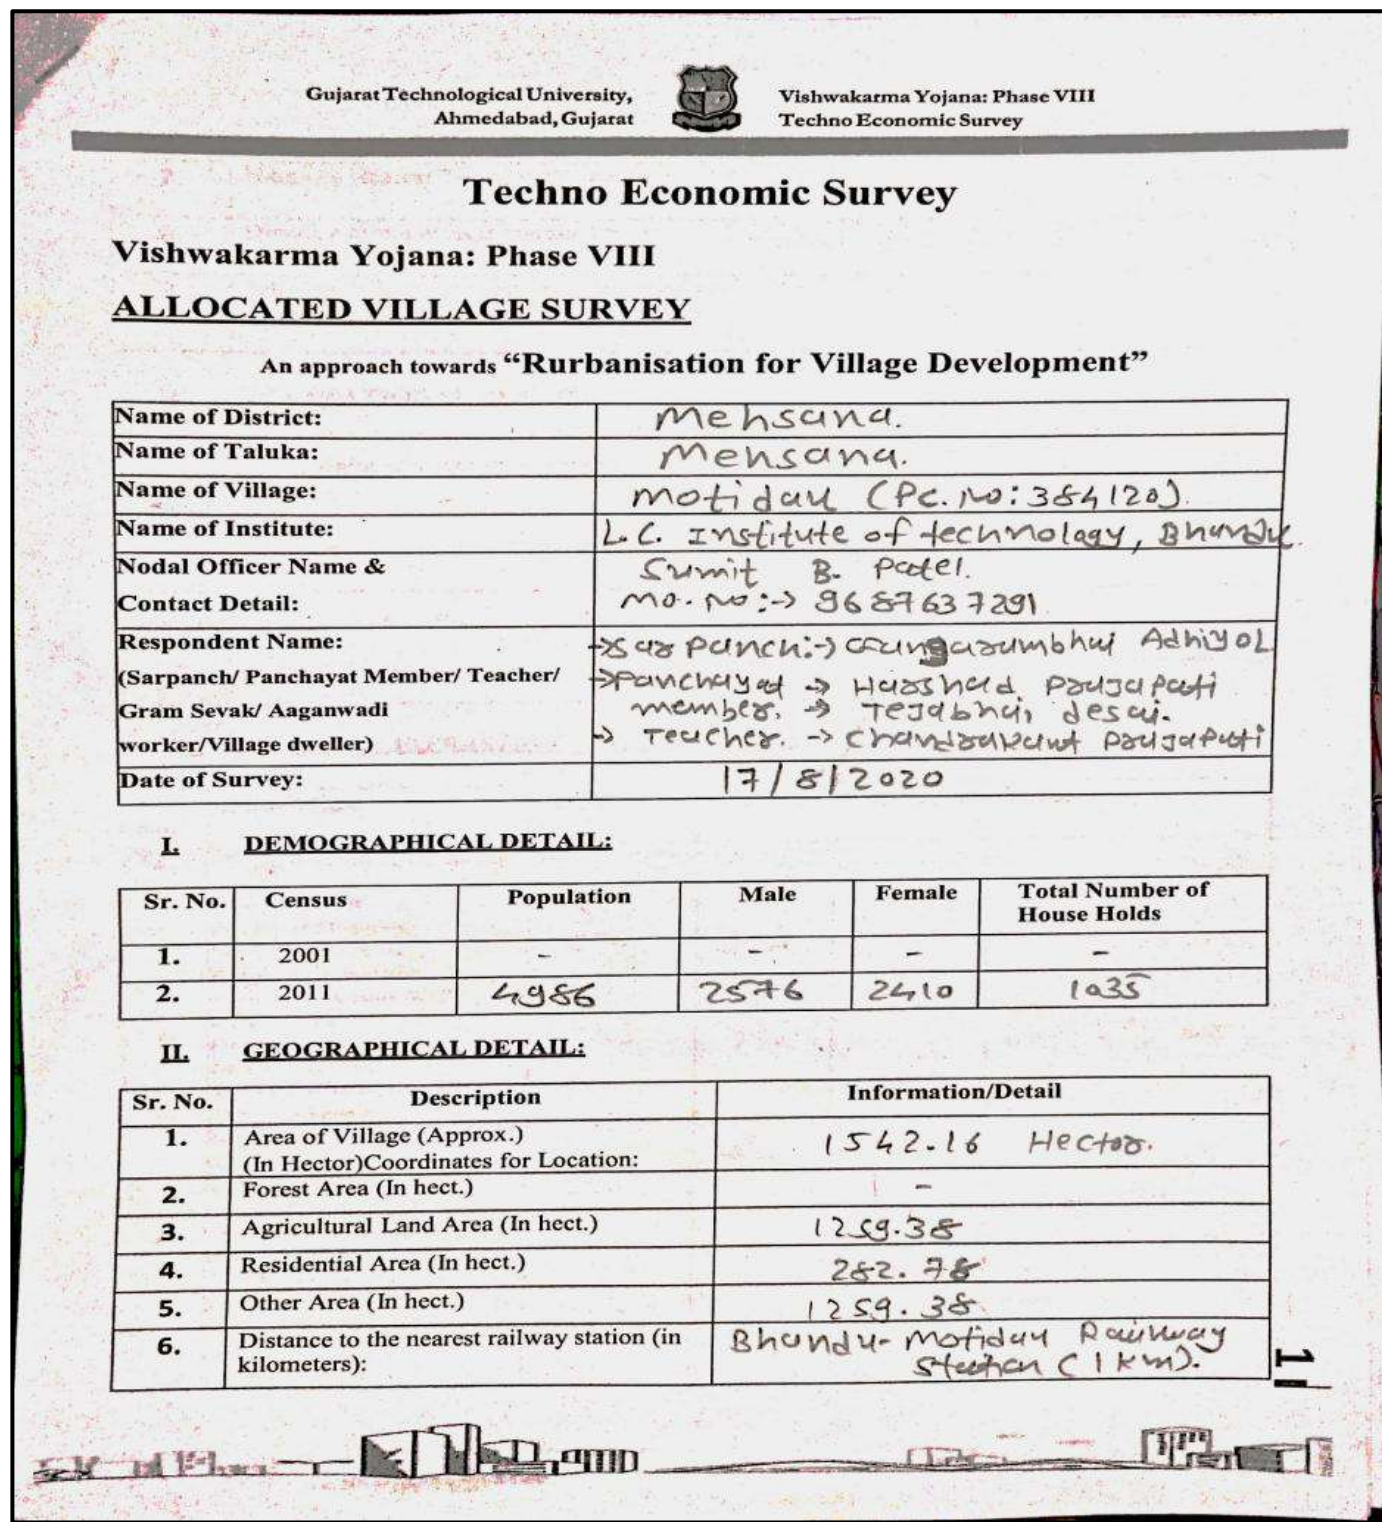 Gujarat Technological University,
Ahmedabad, Gujarat
Vishwakarma Yojana: Phase VIII
Techno Economic Survey
Techno Economic Survey
Vishwakarma Yojana: Phase VIII
ALLOCATED VILLAGE SURVEY
An approach towards “Rurbanisation for Village Development”
Name of District: Mehsana.
Name of Taluka: Mehsana.
Name of Village: motidau (Pc. No: 384120).
Name of Institute: L.C. Institute of technology, Bhandu.
Nodal Officer Name & Sumit B. Patel.
Contact Detail: Mo. No :-> 9687637291
Respondent Name: -> Sarpanch :-> Gangarambhai Adhiyol
(Sarpanch/ Panchayat Member/ Teacher/ -> Panchayat -> Harshad Prajapati
Gram Sevak/ Aaganwadi member. -> Tejabhai desai.
worker/Village dweller) -> Teacher. -> Chandrakant Prajapati
Date of Survey: 17/8/2020
I. DEMOGRAPHICAL DETAIL:
Sr. No. Census Population Male Female Total Number of
House Holds
1. 2001 - - - -
2. 2011 4986 2576 2410 1035
II. GEOGRAPHICAL DETAIL:
Sr. No. Description Information/Detail
1. Area of Village (Approx.) 1542.16 Hector.
(In Hector)Coordinates for Location:
2. Forest Area (In hect.) -
3. Agricultural Land Area (In hect.) 1259.38
4. Residential Area (In hect.) 282.78
5. Other Area (In hect.) 1259.38
6. Distance to the nearest railway station (in Bhandu-Motidau Railway
kilometers): Station (1 km).
1